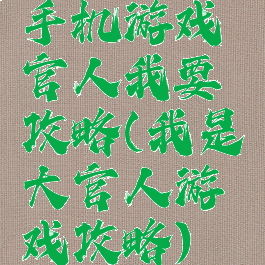 手机游戏
官人我要
攻略(我是
大官人游
戏攻略)